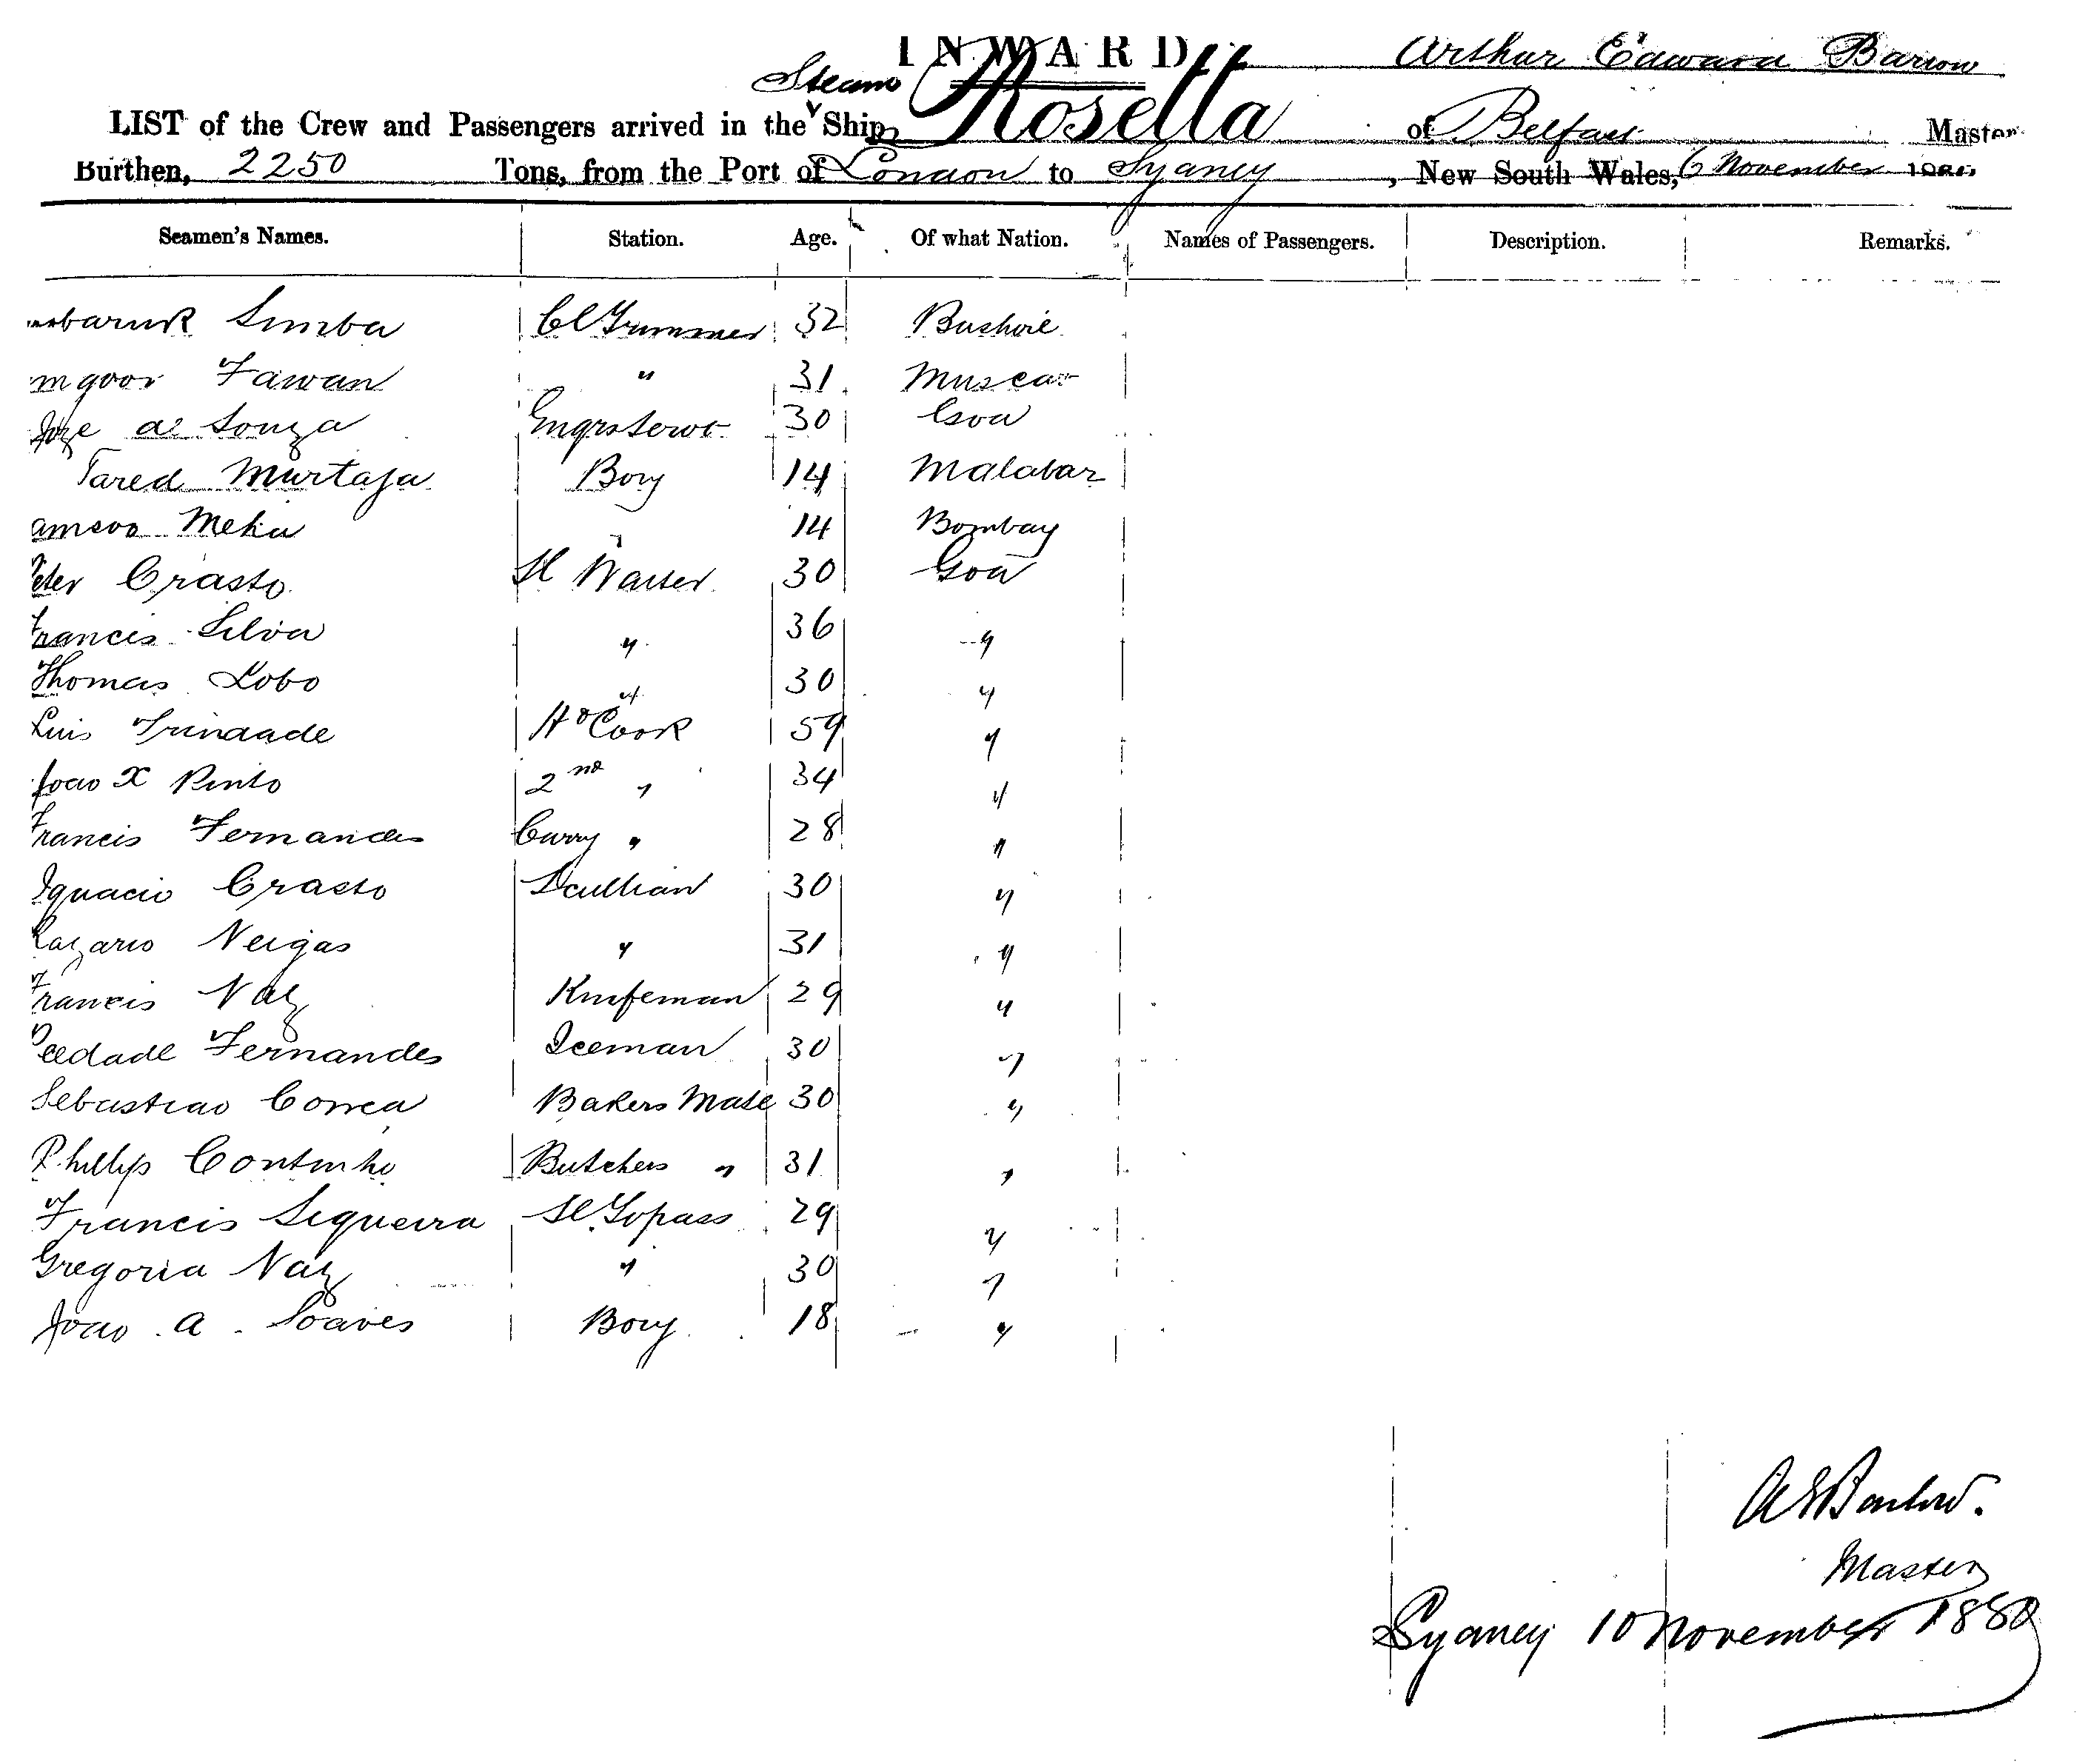 INWARD
Arthur Edward Barrow
Steam
LIST of the Crew and Passengers arrived in the Ship Rosetta of Belfast Master
Burthen, 2250 Tons, from the Port of London to Sydney, New South Wales, 6 November
Seamen's Names. Station. Age. Of what Nation. Names of Passengers. Description. Remarks.
Simba Cl Trimmer 32 Bushire
Tawan " 31 Muscat
Joze de Souza Engrs Servt 30 Goa
Tared Murtaja Boy 14 Malabar
Meha " 14 Bombay
Peter Crasto Sl Waiter 30 Goa
Francis Silva " 36 "
Thomas Lobo " 30 "
Luis Trindade Hd Cook 59 "
Joao X Pinto 2nd " 34 "
Francis Fernandes Curry " 28 "
Ignacio Crasto Scullian 30 "
Lazaro Veigas " 31 "
Francis Vaz Knifeman 29 "
Peedade Fernandes Iceman 30 "
Sebastiao Correa Bakers Mate 30 "
Phillip Continho Butchers " 31 "
Francis Sequeira Sl Topass 29 "
Gregoria Vaz " 30 "
Joao A. Soares Boy 18 "
Master
Sydney 10 November 1880